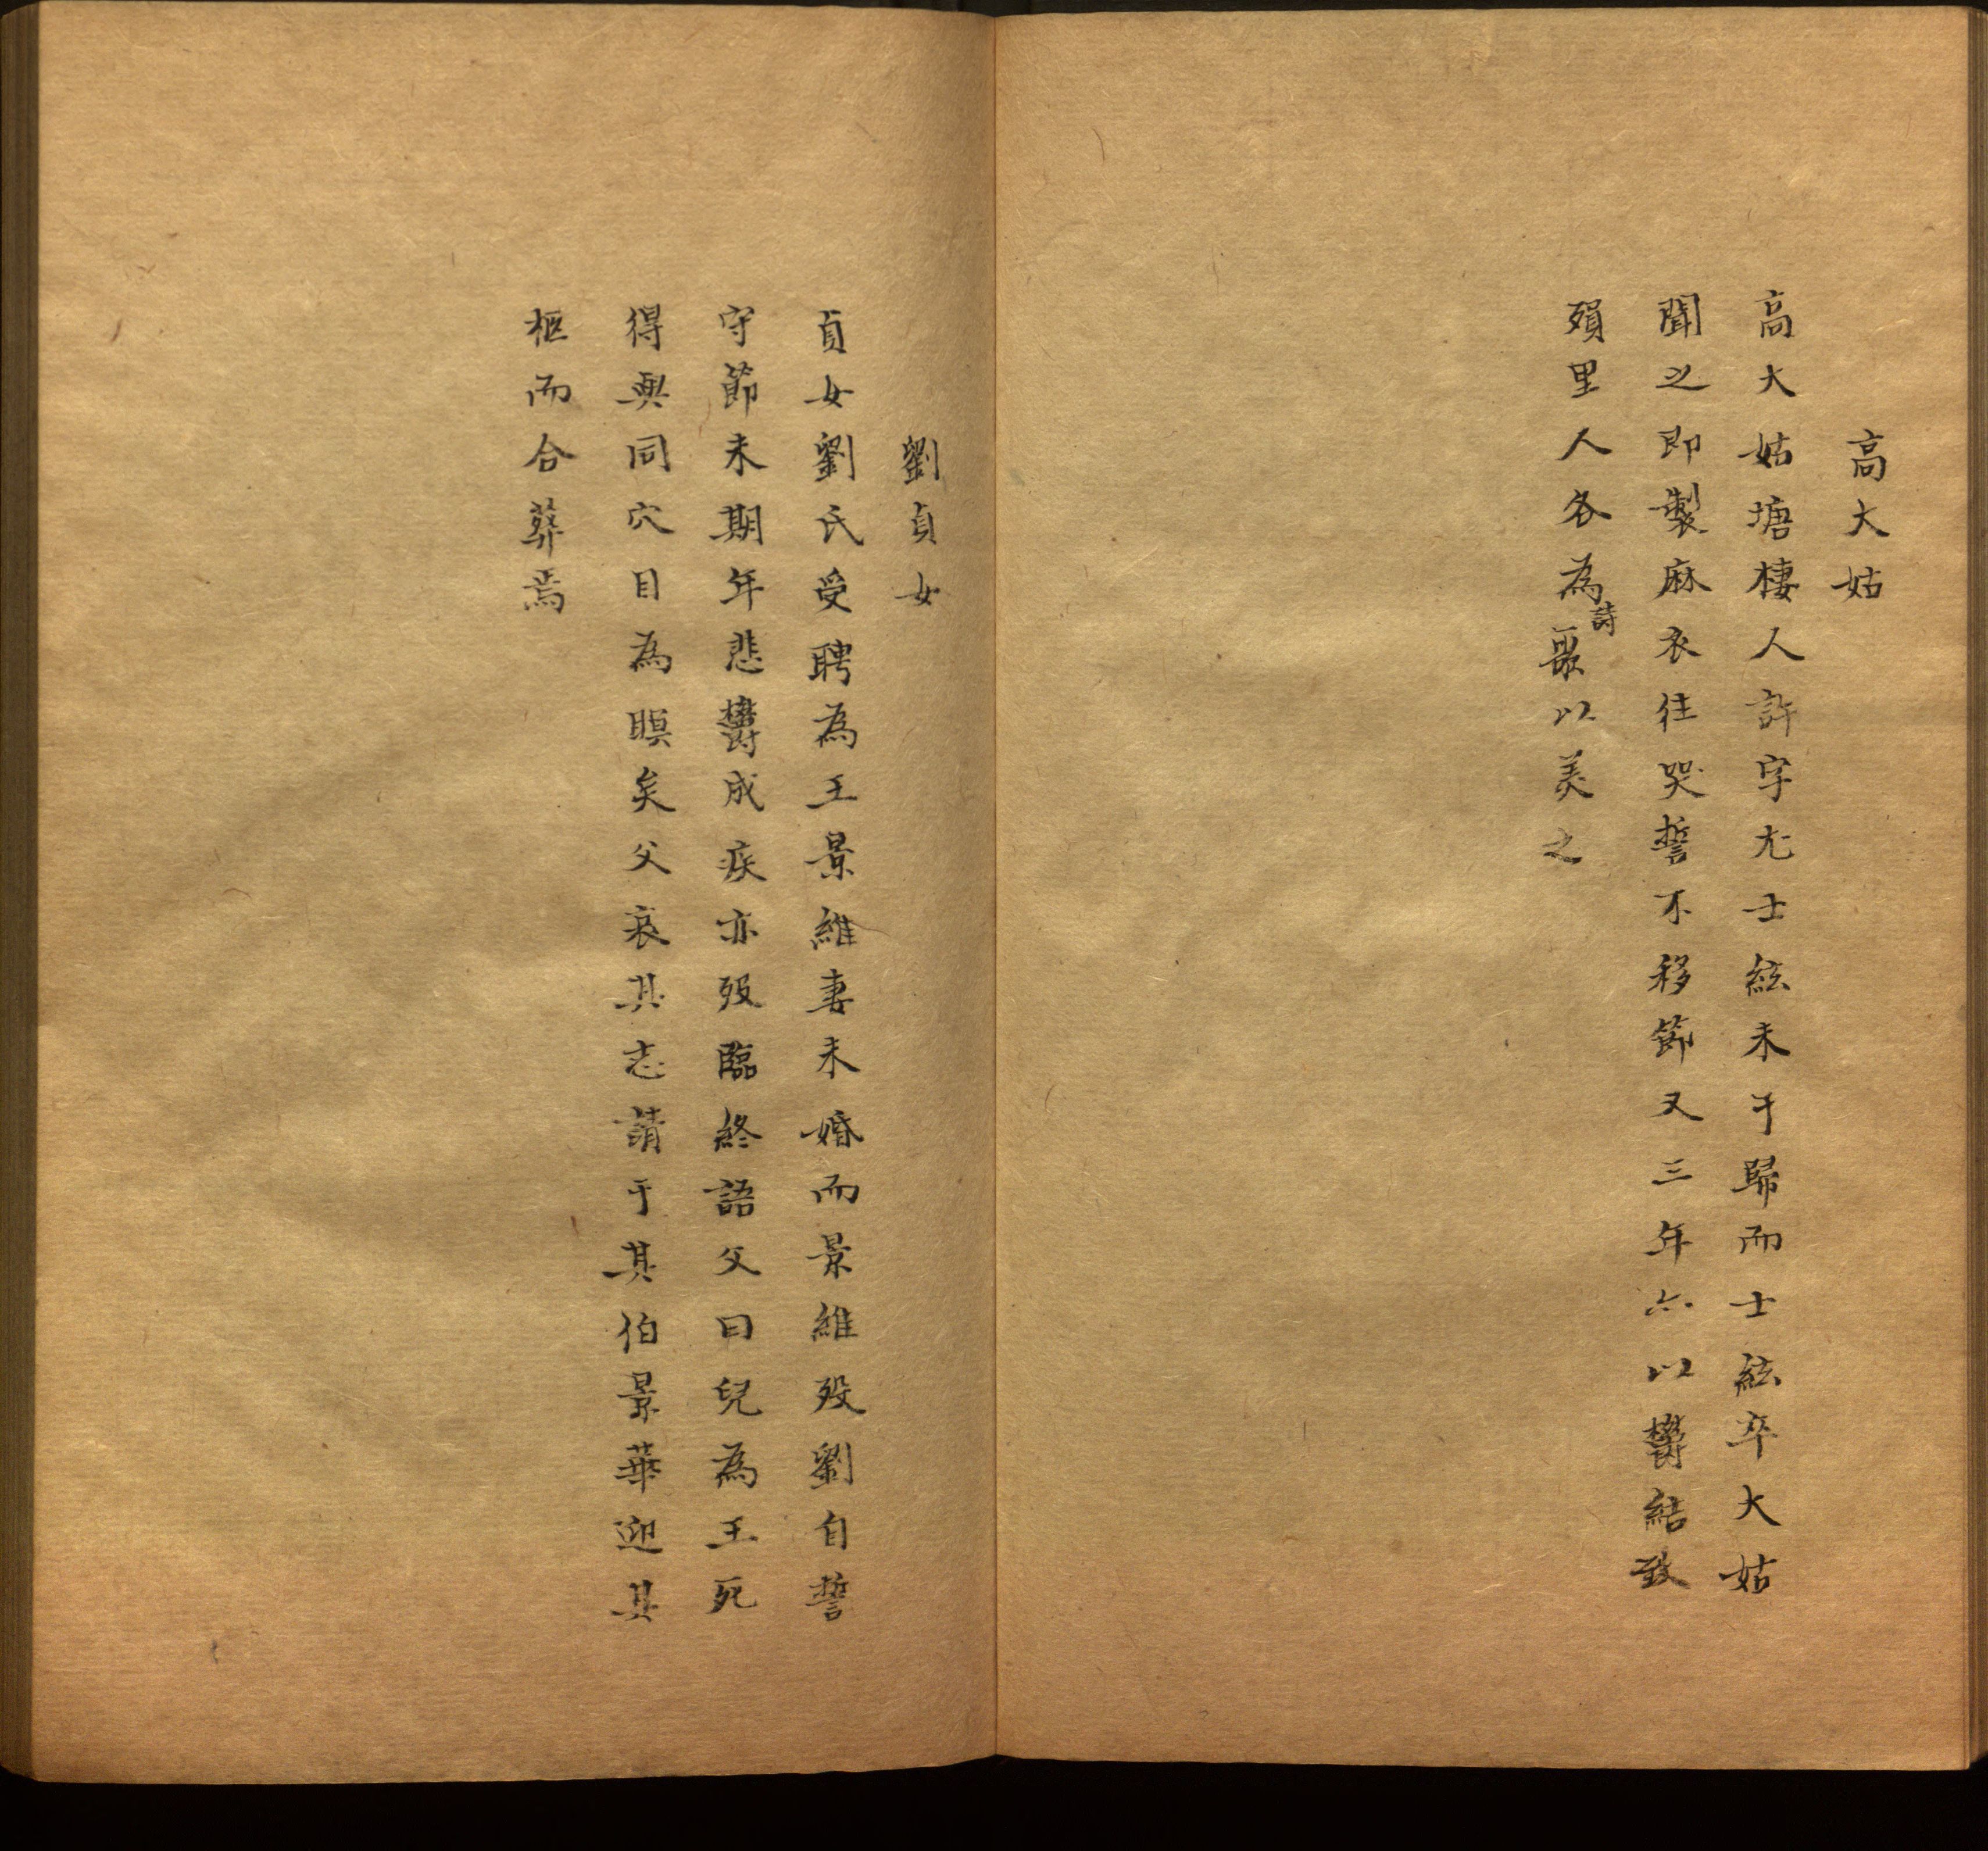 高大姑
高大姑塘棲人許字尤士絃未于歸而士絃卒大姑
聞之即製麻衣往哭誓不移節又三年亦以鬱結致
殞里人各為詩歌以美之
劉貞女
貞女劉氏受聘為王景維妻未婚而景維歿劉自誓
守節未期年悲鬱成疾亦歿臨終語父曰兒為王死
得與同穴目為瞑矣父哀其志請于其伯景華迎其
柩而合葬焉